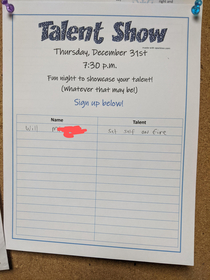 Talent Show
Thursday, December 31st
7:30 p.m.
Fun night to showcase your talent!
(Whatever that may be!)
Sign up below!
Name Talent
Will M set self on fire